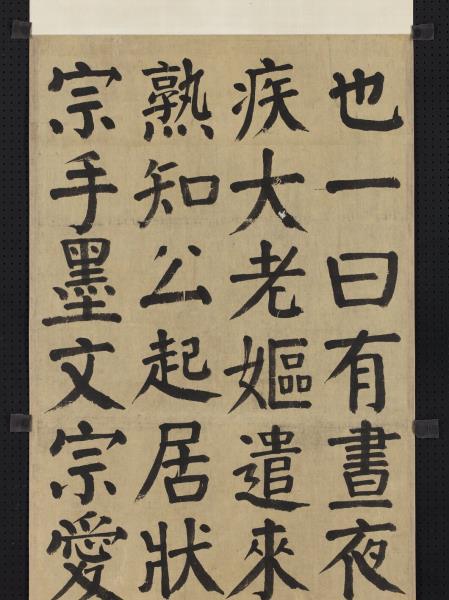 也一曰有晝夜
疾大老嫗遣來
熟知公起居狀
宗手墨文宗愛